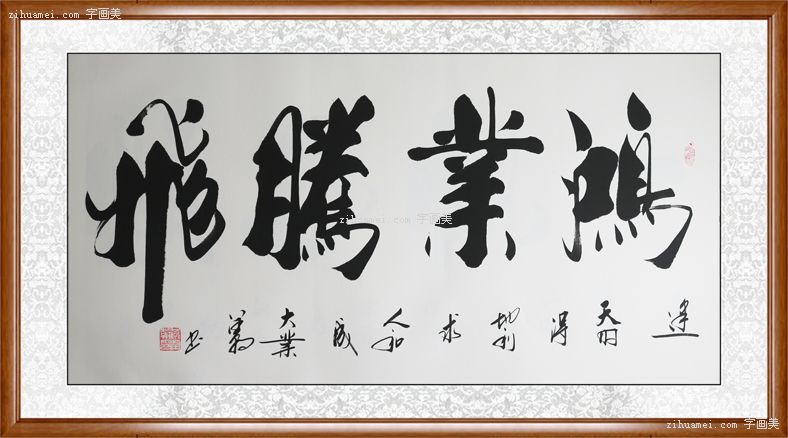 zihuamei.com 字画美
鴻業騰飛
逢天时得地利求人和成大業
书
zihuamei.com 字画美
zihuamei.com 字画美